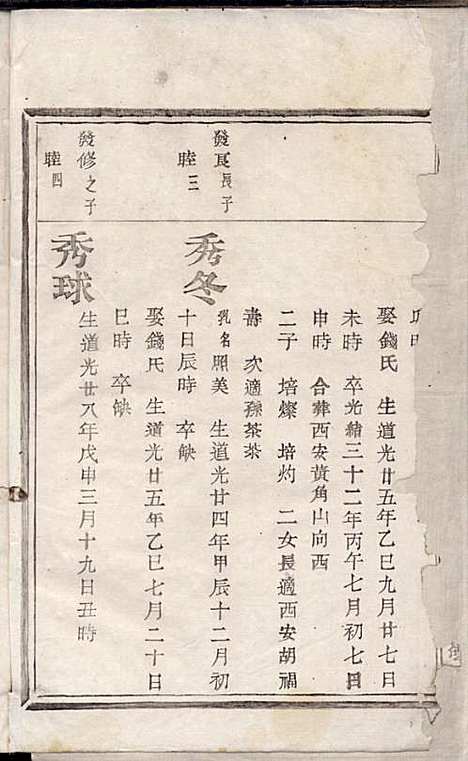 娶錢氏 生道光廿五年乙巳九月廿七日
未時 卒光緒三十二年丙午七月初七日
申時 合葬西安黃角山向西
二子 培燦 培灼 二女長適西安胡福
壽 次適孫茶茶
發良長子
睦三
秀冬
乳名照美 生道光廿四年甲辰十二月初
十日辰時 卒缺
娶錢氏 生道光廿五年乙巳七月二十日
巳時 卒缺
發修之子
睦四
秀球
生道光廿八年戊申三月十九日丑時